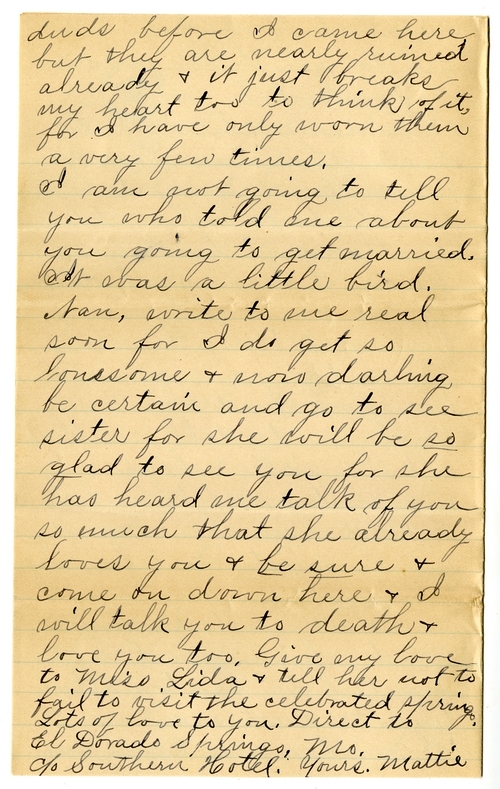 duds before I came here
but they are nearly ruined
already & it just breaks
my heart too to think of it,
for I have only worn them
a very few times.
I am not going to tell
you who told me about
you going to get married.
It was a little bird.
Nan, write to me real
soon for I do get so
lonesome & now darling
be certain and go to see
sister for she will be so
glad to see you for she
has heard me talk of you
so much that she already
loves you & be sure &
come on down here & I
will talk you to death &
love you too. Give my love
to Miss Lida & tell her not to
fail to visit the celebrated springs.
Lots of love to you. Direct to
El Dorado Springs, Mo.
c/o Southern Hotel. Yours. Mattie